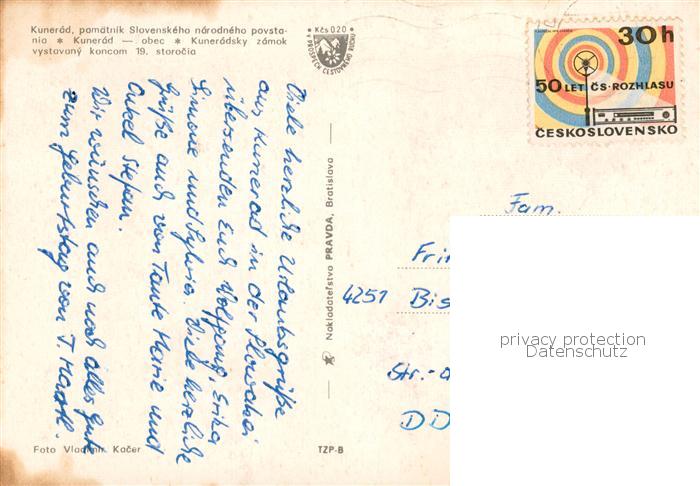 Kunerád, pamätník Slovenského národného povsta-
nia ✶ Kunerád — obec ✶ Kunerádsky zámok
vystavaný koncom 19. storočia
Kčs 0,20
V PROSPECH CESTOVNÉHO RUCHU
30h
50 LET ČS. ROZHLASU
ČESKOSLOVENSKO
Viele herzliche Urlaubsgrüße
aus Kunerad in der Slowakei
übersenden Euch Wolfgang, Erika,
Simone und Sylvia. Viele herzliche
Grüße auch von Tante Marie und
Onkel Stefan.
Wir wünschen auch noch alles Gute
zum Geburtstag von T.
Nakladateľstvo PRAVDA, Bratislava
Fam.
4251
Str.-
DD
privacy protection
Datenschutz
Foto Vladimír Kačer
TZP-B